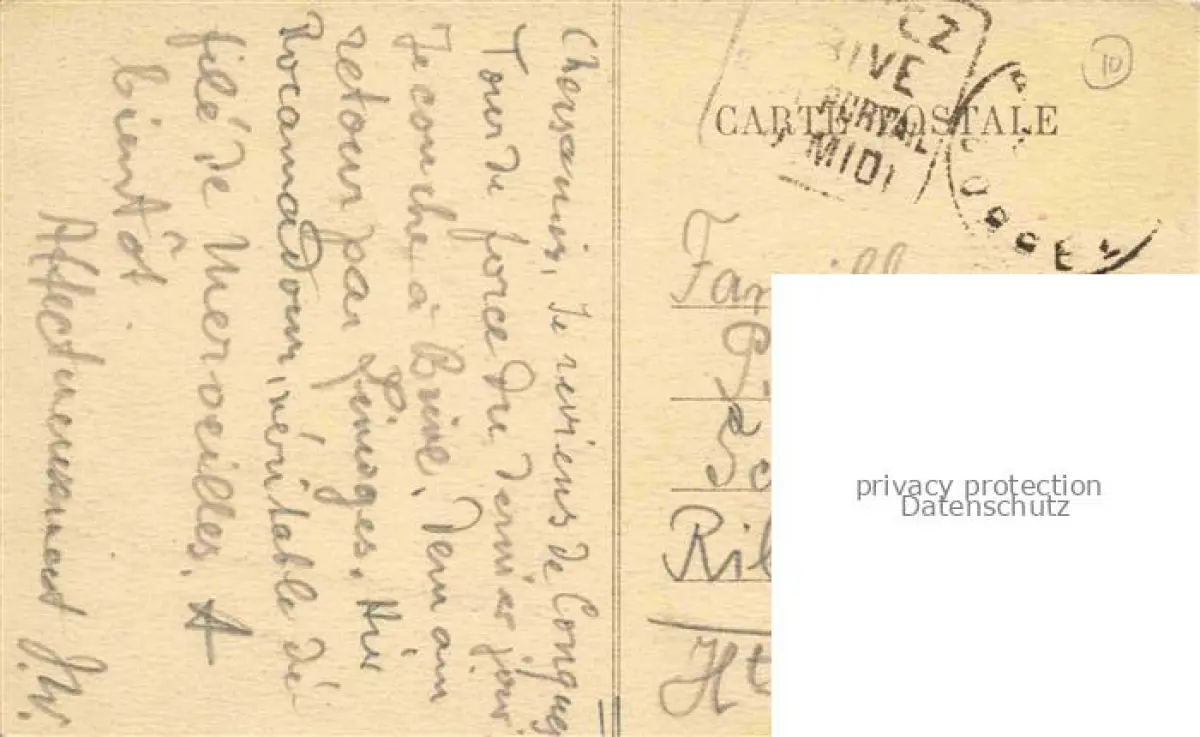 Chers amis, Je reviens de Conques
Tour de force du dernier jour
Je couche à Brive. Demain
retour par Limoges. Hier
Rocamadour, véritable dé-
filé de Merveilles. A
bientôt
Affectueusement J.W.
EZ
RIVE
PORTAIL
MIDI
CARTE POSTALE
10
Famill
P.
Rib
Ht
privacy protection
Datenschutz